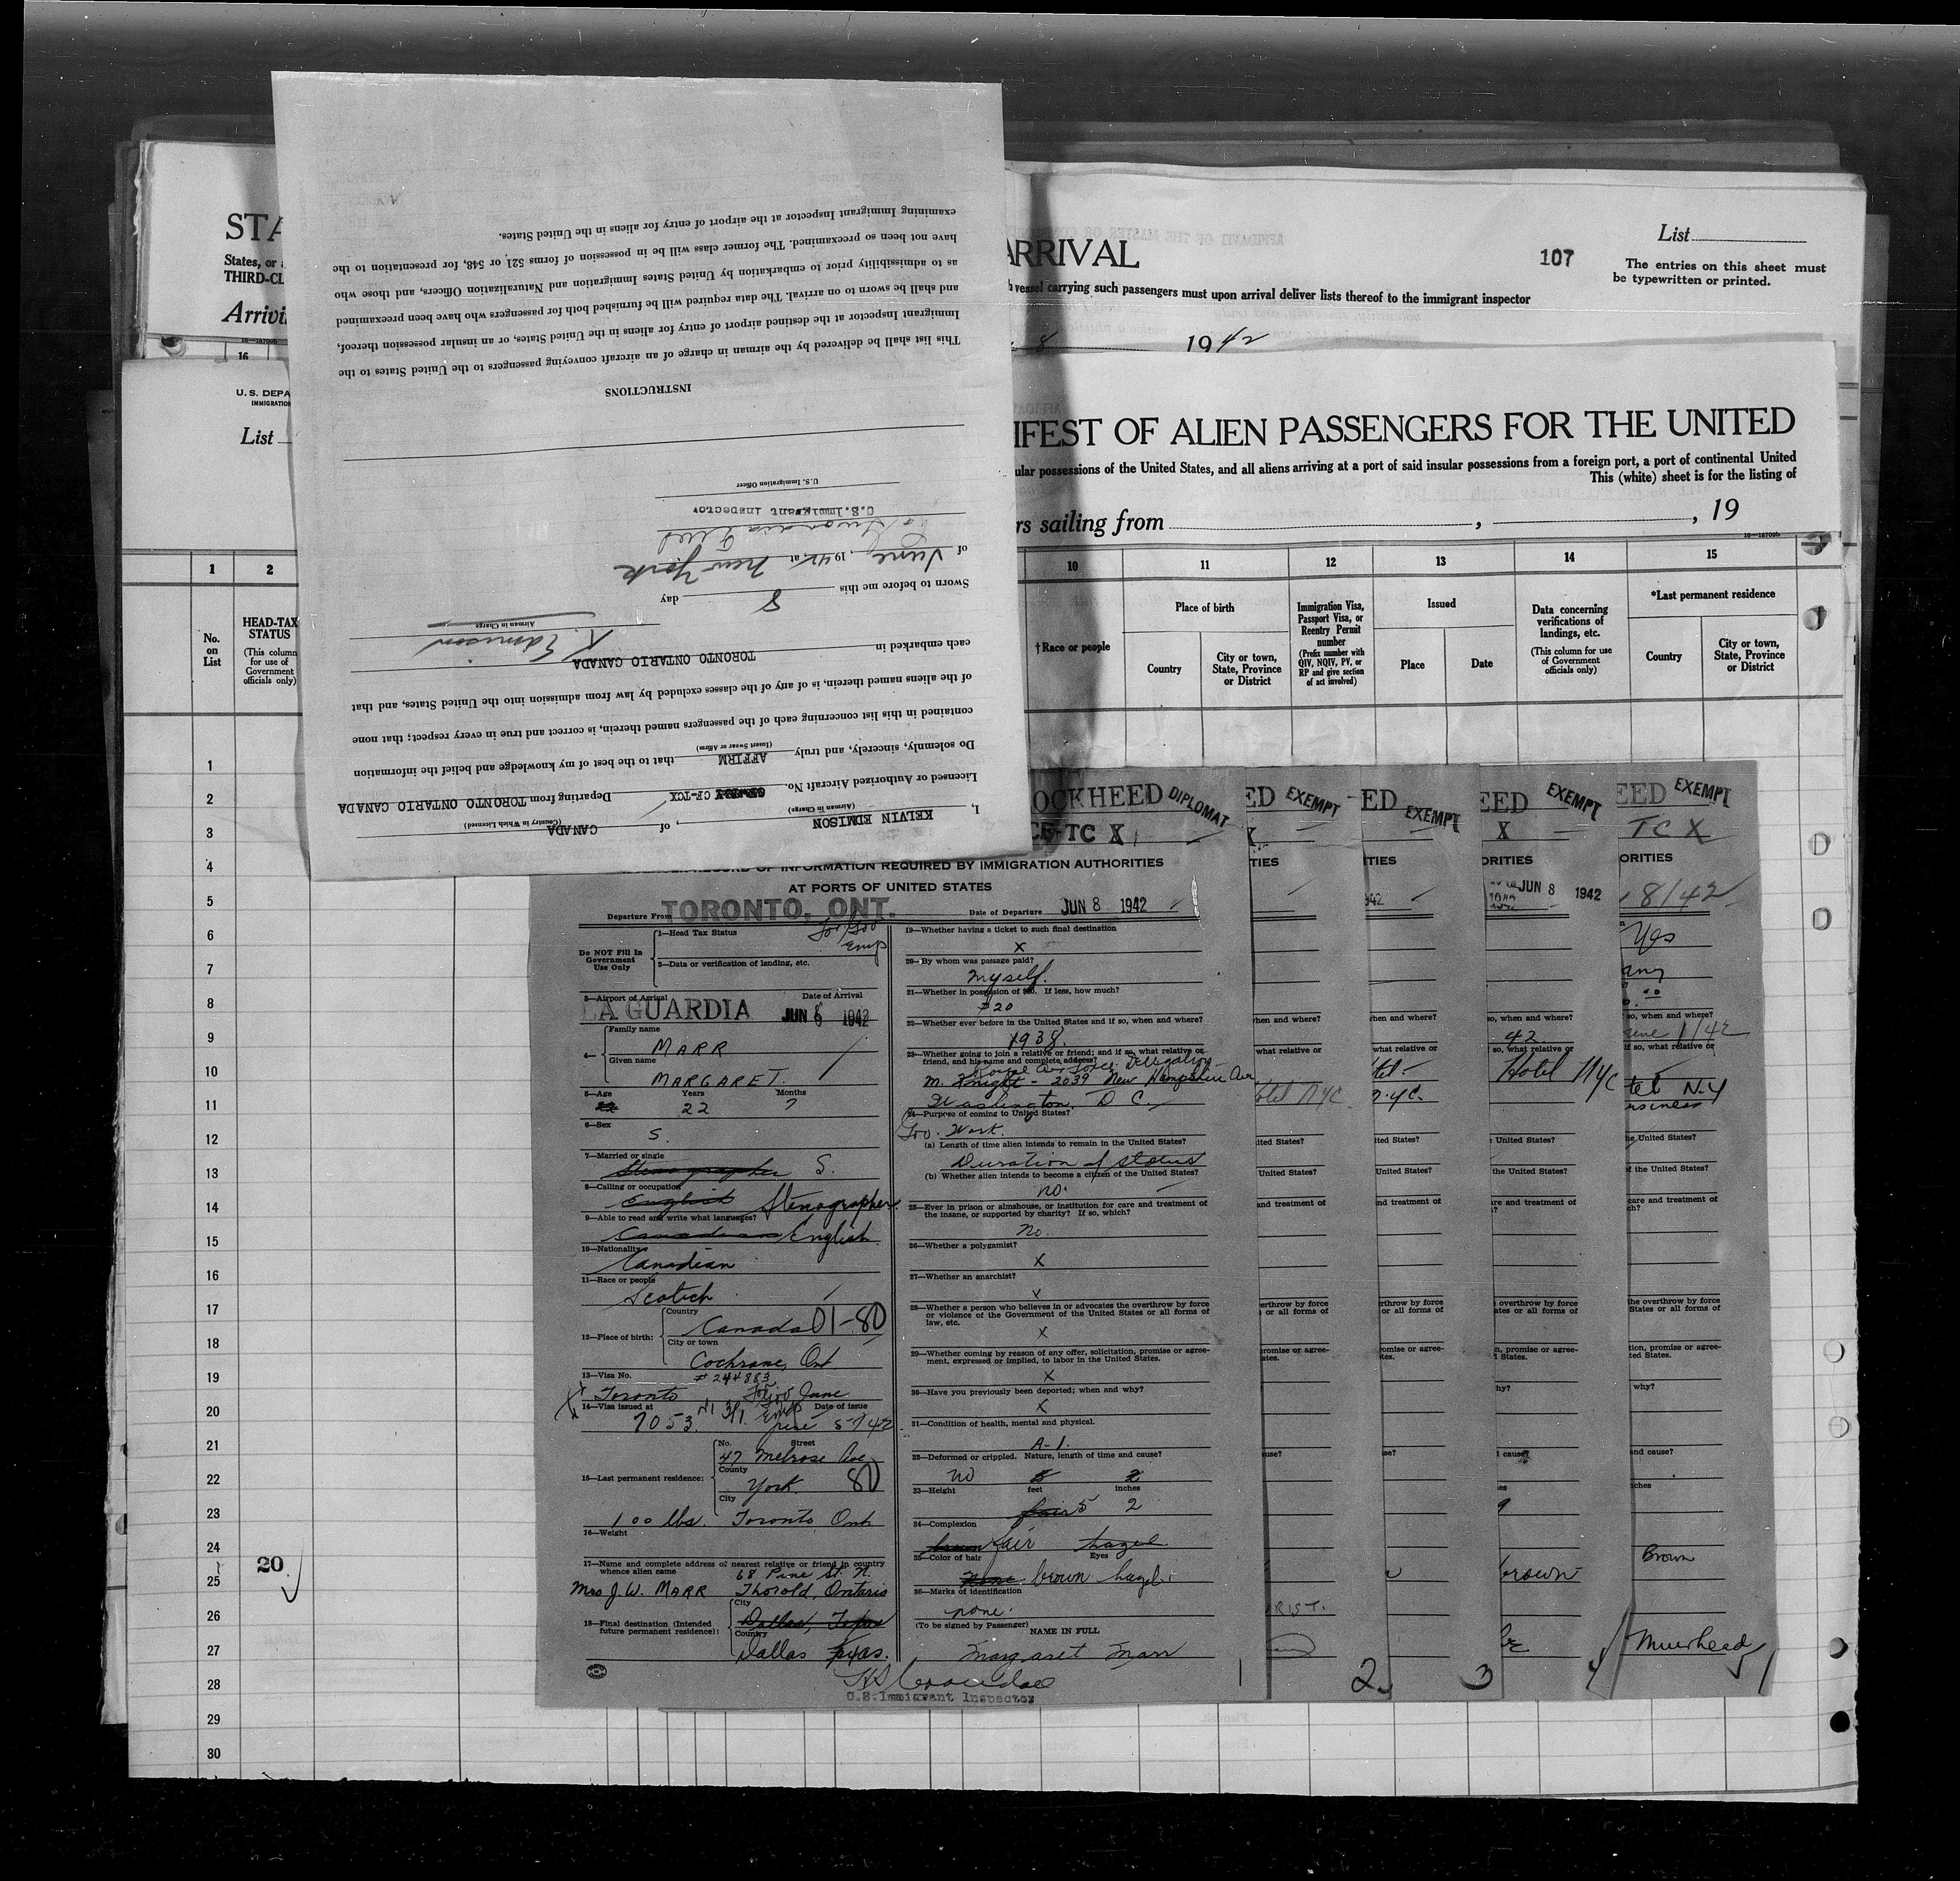 STA
States, or
THIRD-CL
Arrivi
16
ARRIVAL
107
List
The entries on this sheet must
be typewritten or printed.
vessel carrying such passengers must upon arrival deliver lists thereof to the immigrant inspector
8 1942
U. S. DEPA
IMMIGRATION
List
IFEST OF ALIEN PASSENGERS FOR THE UNITED
ular possessions of the United States, and all aliens arriving at a port of said insular possessions from a foreign port, a port of continental United
This (white) sheet is for the listing of
rs sailing from , , 19
16—18709b
1 2 10 11 12 13 14 15
No.
on
List
HEAD-TAX
STATUS
(This column
for use of
Government
officials only)
†Race or people
Place of birth
Country
City or town,
State, Province
or District
Immigration Visa,
Passport Visa, or
Reentry Permit
number
(Prefix number with
QIV, NQIV, PV, or
RP and give section
of act involved)
Issued
Place
Date
Data concerning
verifications of
landings, etc.
(This column for use
of Government
officials only)
*Last permanent residence
Country
City or town,
State, Province
or District
1
2
3
4
5
6
7
8
9
10
11
12
13
14
15
16
17
18
19
20
21
22
23
24
25
26
27
28
29
30
20
I, KELVIN EDMISON, of CANADA
(Airman in Charge) (Country in Which Licensed)
Licensed or Authorized Aircraft No. CF-TCX Departing from TORONTO ONTARIO CANADA
Do solemnly, sincerely, and truly AFFIRM that to the best of my knowledge and belief the information
(Insert Swear or Affirm)
contained in this list concerning each of the passengers named therein, is correct and true in every respect; that none
of the aliens named therein, is of any of the classes excluded by law from admission into the United States, and that
each embarked in TORONTO ONTARIO CANADA
K. Edmison
Airman in Charge
Sworn to before me this 8 day
of June, 1942 at New York
U.S.Immigrant Inspector
U. S. Immigration Officer
INSTRUCTIONS
This list shall be delivered by the airman in charge of an aircraft conveying passengers to the United States to the
Immigrant Inspector at the destined airport of entry for aliens in the United States, or an insular possession thereof,
and shall be sworn to on arrival. The data required will be furnished both for passengers who have been preexamined
as to admissibility prior to embarkation by United States Immigration and Naturalization Officers, and those who
have not been so preexamined. The former class will be in possession of forms 521 or 548, for presentation to the
examining Immigrant Inspector at the airport of entry for aliens in the United States.
OCKHEED DIPLOMAT
CF-TC X
RECORD OF INFORMATION REQUIRED BY IMMIGRATION AUTHORITIES
AT PORTS OF UNITED STATES
Departure From TORONTO, ONT. Date of Departure JUN 8 1942
Do NOT Fill In
Government
Use Only
1—Head Tax Status
2—Data or verification of landing, etc.
3—Airport of Arrival Date of Arrival
LA GUARDIA JUN 8 1942
4— Family name
MARR
Given name
MARGARET.
5—Age Years Months
22 7
6—Sex
S.
7—Married or single
Stenographer S.
8—Calling or occupation
English Stenographer
9—Able to read and write what languages?
Canadian English
10—Nationality
Canadian
11—Race or people
Scotch
12—Place of birth:
Country
Canada 01-80
City or town
Cochrane, Ont
13—Visa No. # 244883
Toronto June
14—Visa issued at Date of issue
7053 June 5/42
15—Last permanent residence:
No. Street
47 Melrose Ave
County
York. 80
City
100 lbs. Toronto Ont
16—Weight
17—Name and complete address of nearest relative or friend in country
whence alien came 68 Pine St. N.
Mrs J. W. MARR Thorold, Ontario
18—Final destination (Intended
future permanent residence):
City
Dallas, Texas
Country
Dallas Texas.
19—Whether having a ticket to such final destination
X
20—By whom was passage paid?
Myself.
21—Whether in possession of $50. If less, how much?
$20
22—Whether ever before in the United States and if so, when and where?
1938.
23—Whether going to join a relative or friend; and if so, what relative or
friend, and his name and complete address?
Royal Air Force Delegation
M. Knight - 2039 New Hampshire Ave
Washington, D C.
24—Purpose of coming to United States?
Gov. Work.
(a) Length of time alien intends to remain in the United States?
Duration of status
(b) Whether alien intends to become a citizen of the United States?
no.
25—Ever in prison or almshouse, or institution for care and treatment of
the insane, or supported by charity? If so, which?
No.
26—Whether a polygamist?
X
27—Whether an anarchist?
X
28—Whether a person who believes in or advocates the overthrow by force
or violence of the Government of the United States or all forms of
law, etc.
X
29—Whether coming by reason of any offer, solicitation, promise or agree-
ment, expressed or implied, to labor in the United States.
X
30—Have you previously been deported; when and why?
X
31—Condition of health, mental and physical.
A-1.
32—Deformed or crippled. Nature, length of time and cause?
no 5 2
33—Height feet inches
fair 5 2
34—Complexion
brown fair hazel
35—Color of hair Eyes
None. brown hazel
36—Marks of identification
none.
(To be signed by Passenger)
NAME IN FULL
Margaret Marr
U.S.Immigrant Inspector
1
ED EXEMPT
X
TIES
hen and where?
what relative or
otel NYC
ited States?
United States?
and treatment of
erthrow by force
or all forms of
romise or agree-
ates.
use?
RIST.
2
ED EXEMPT
TIES
942
hen and where?
what relative or
tel -
N.Y.C.
ited States?
United States?
and treatment of
rthrow by force
or all forms of
omise or agree-
tes.
se?
3
EED EXEMPT
X
ORITIES
JUN 8 1942
so, when and where?
42
so, what relative or
Hotel NYC
United States?
the United States?
re and treatment of
overthrow by force
ates or all forms of
n, promise or agree-
d States.
hy?
d cause?
es
9
brown
4
EED EXEMPT
TC X
ORITIES
8/42
Yes
any
so, when and where?
June 1/42
if so, what relative or
tel N.Y
usiness
he United States?
f the United States?
care and treatment of
ch?
the overthrow by force
States or all forms of
tion, promise or agree-
ted States.
why?
and cause?
ches
Brown
Muirhead